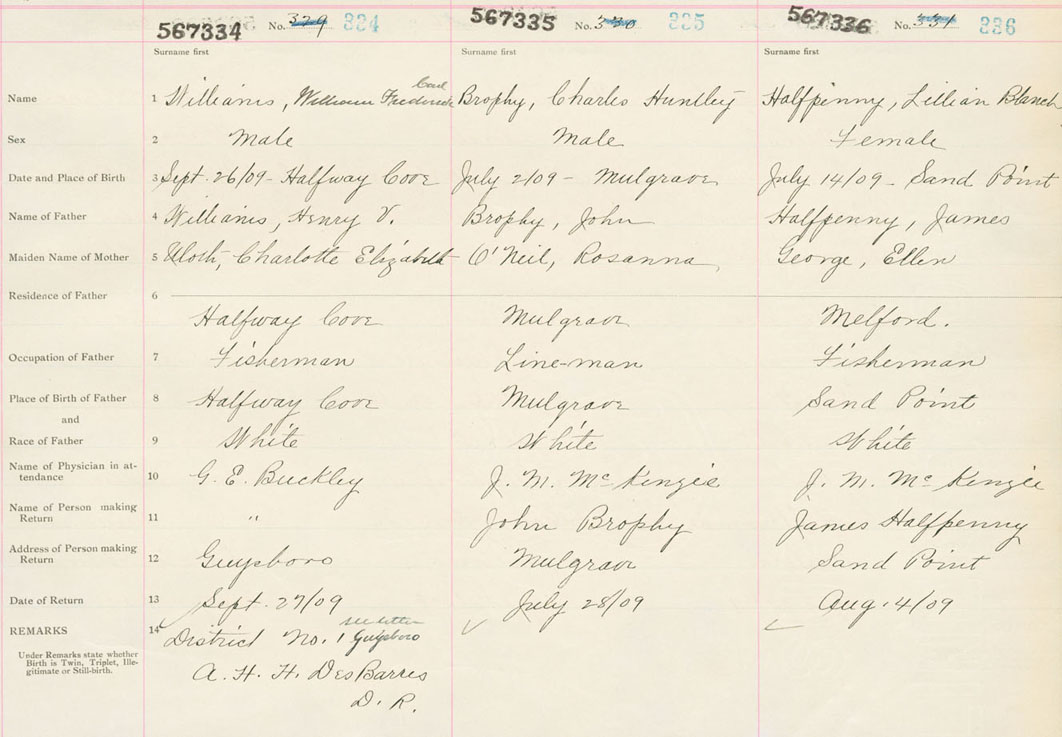 567334 No. 329 334 567335 No. 330 335 567336 No. 331 336
Surname first Surname first Surname first
Name 1 Williams, William Frederick Carl Brophy, Charles Huntley Halfpenny, Lillian Blanch
Sex 2 Male Male Female
Date and Place of Birth 3 Sept. 26/09 - Halfway Cove July 2/09 - Mulgrave July 14/09 - Sand Point
Name of Father 4 Williams, Henry V. Brophy, John Halfpenny, James
Maiden Name of Mother 5 Uloth, Charlotte Elizabeth O'Neil, Rosanna George, Ellen
Residence of Father 6
Halfway Cove Mulgrave Melford.
Occupation of Father 7 Fisherman Line-man Fisherman
Place of Birth of Father 8 Halfway Cove Mulgrave Sand Point
and
Race of Father 9 White White White
Name of Physician in at-
tendance 10 G. E. Buckley J. M. McKenzie J. M. McKenzie
Name of Person making
Return 11 " John Brophy James Halfpenny
Address of Person making
Return 12 Guysboro Mulgrave Sand Point
Date of Return 13 Sept. 27/09 July 28/09 Aug. 4/09
see letter
REMARKS 14 District No. 1 Guysboro
Under Remarks state whether
Birth is Twin, Triplet, Ille-
gitimate or Still-birth.
A. H. H. DesBarres
D. R.